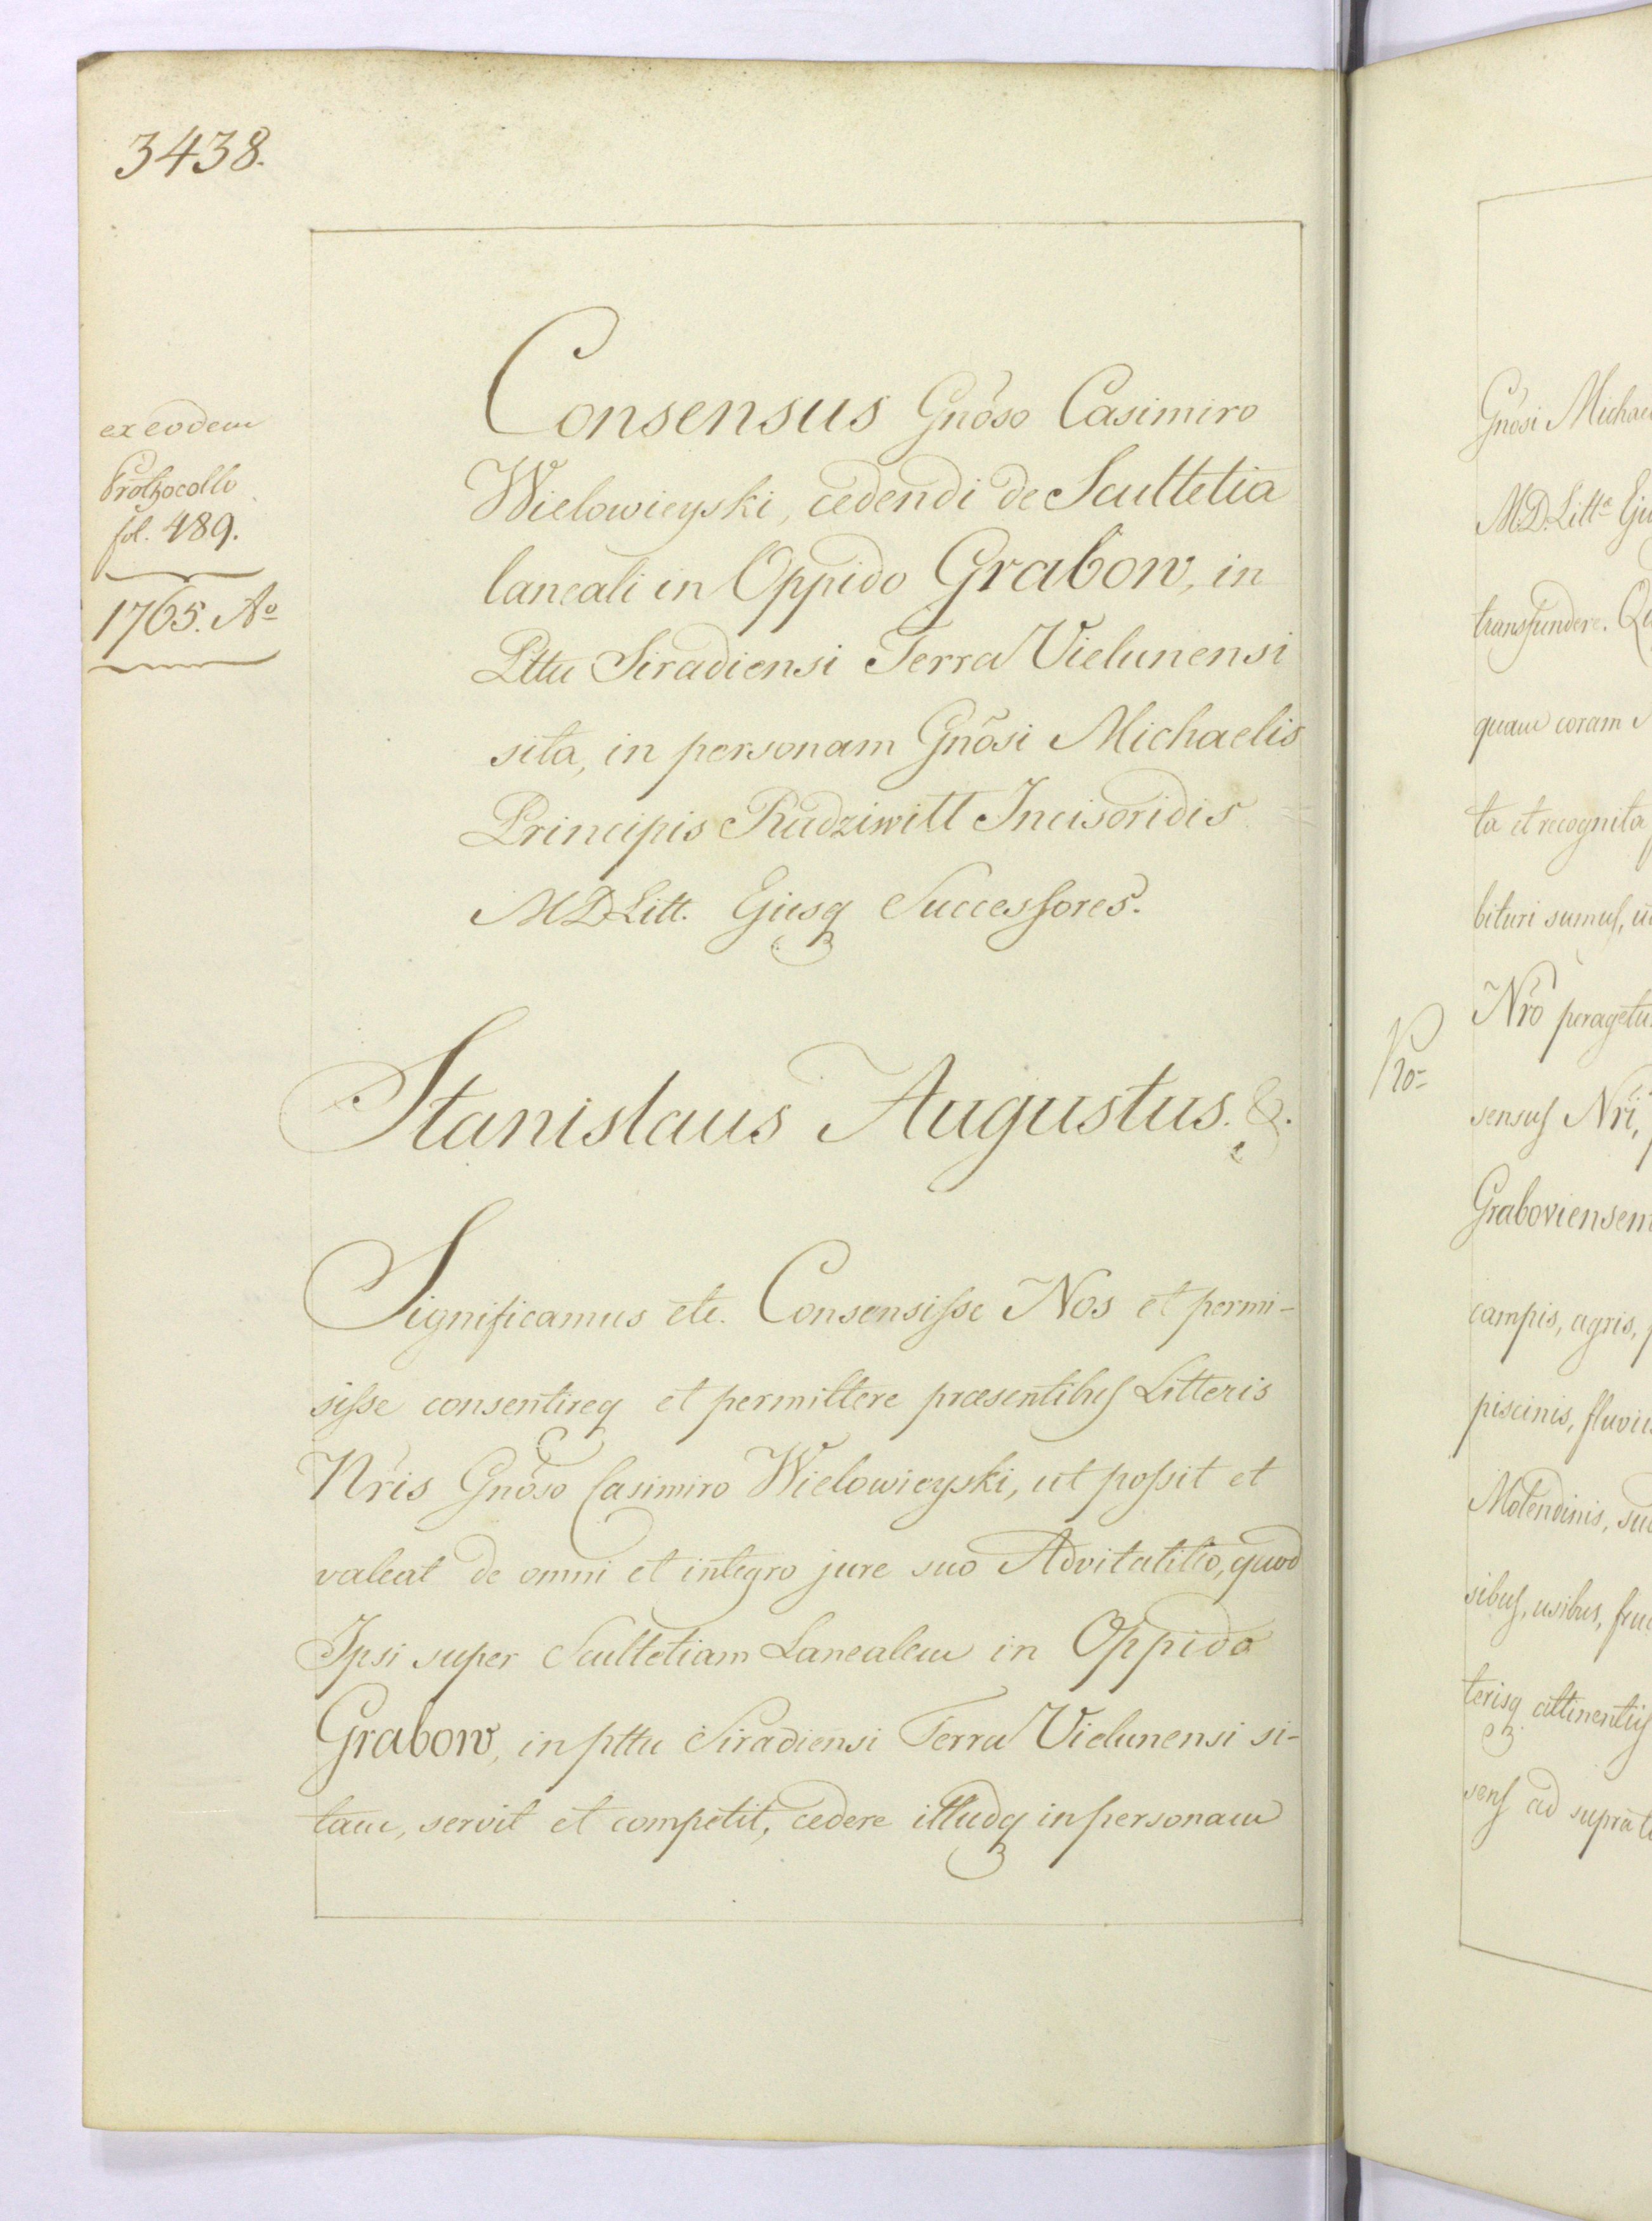 3438.
ex eodem
Prothocollo
fol. 489.
1765. Ao
Consensus Gnõso Casimiro
Wielowieyski, cedendi de Scultetia
laneali in Oppido Grabow, in
Pttu Siradiensi Terra Vielunensi
sita, in personam Gnõsi Michaelis
Principis Radziwitt Incisoridis
MDLitt. Ejusq Successores.
Stanislaus Augustus. &.
Significamus etc. Consensisse Nos et permi-
sisse consentireq et permittere præsentibus Litteris
Nr̃is Gnõso Casimiro Wielowieyski, ut possit et
valeat de omni et integro jure suo Advitalitio, quod
Ipsi super Scultetiam Lanealem in Oppido
Grabow, in pttu Siradiensi Terra Vielunensi si-
tam, servit et competit, cedere illudq in personam
Gnõsi Michae
M.D.Litta Eju
transfundere. Qu
quam coram
ta et recognita
bituri sumus,
Nr̃o peragetu
sensus Nr̃i,
Graboviensem
campis, agris,
piscinis, fluviis
Molendinis, su
sibus, usibus, fruc
terisq attinentiis
sens ad supra t